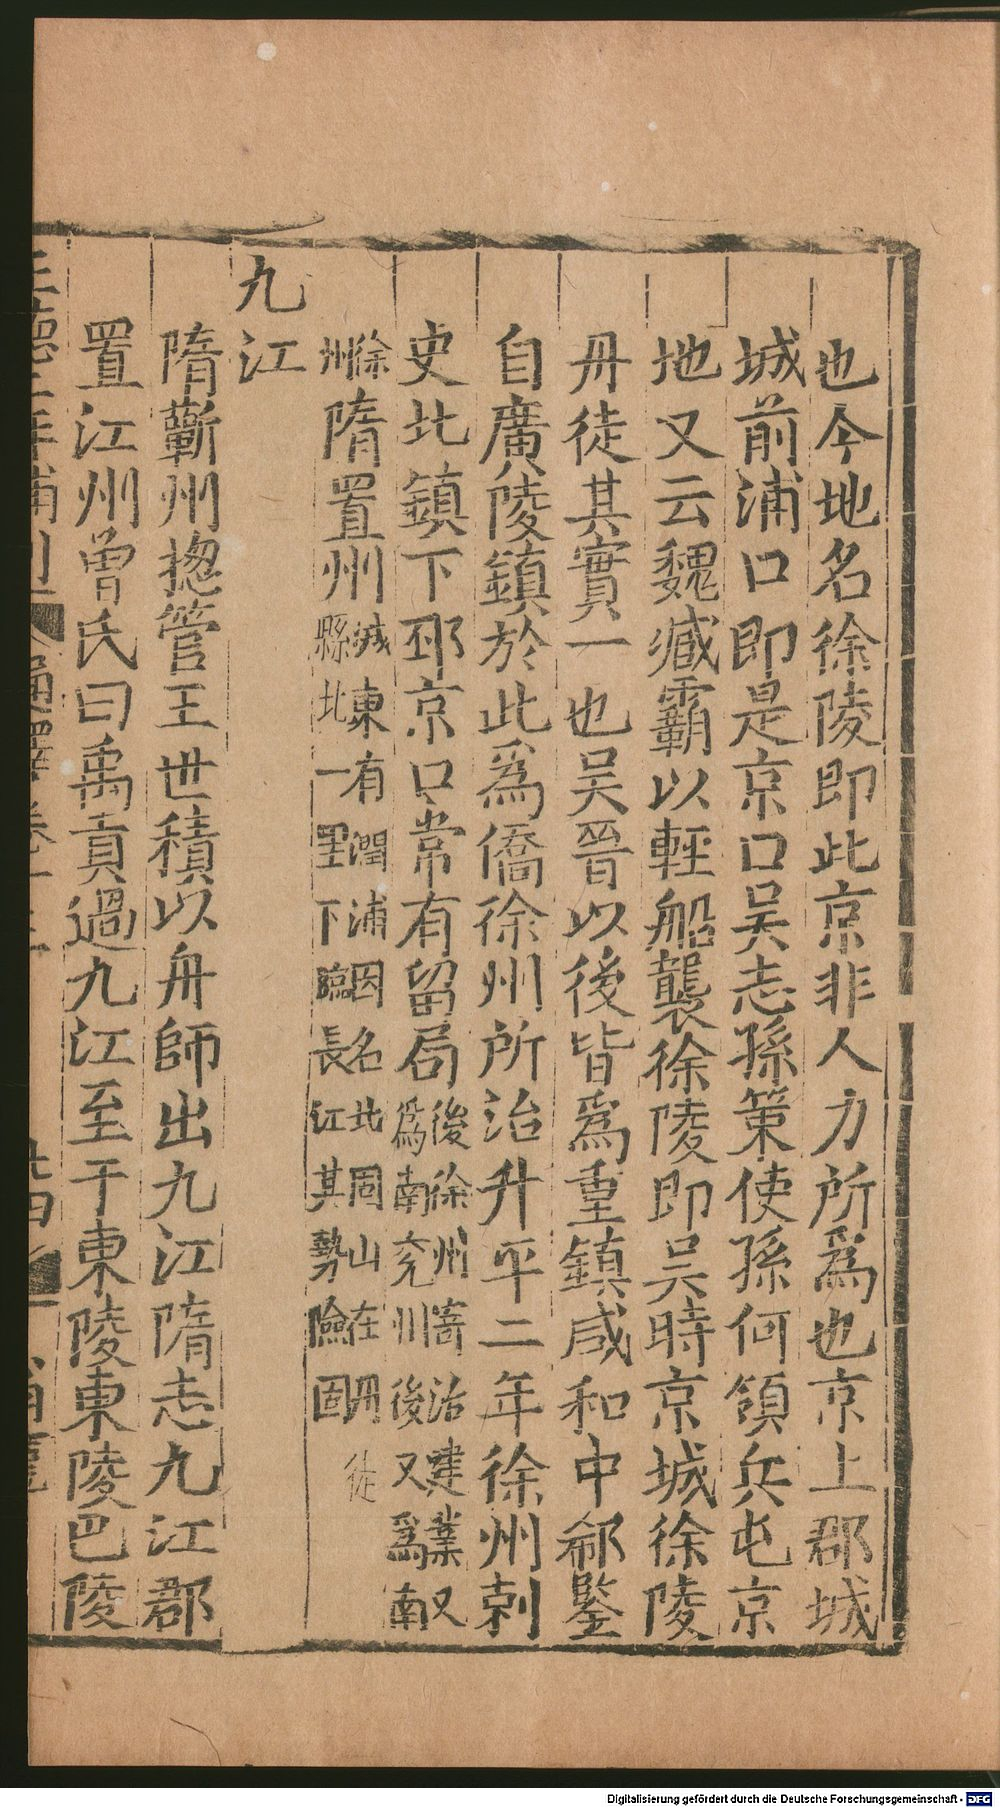 也今地名徐陵即此京非人力所爲也京上郡城
城前浦口即是京口吴志孫策使孫何領兵屯京
地又云魏臧霸以輕船襲徐陵即吴時京城徐陵
丹徒其實一也吴晉以後皆爲重鎮咸和中郗鑒
自廣陵鎮於此爲僑徐州所治升平二年徐州刺
史北鎮下邳京口常有留局後徐州寄治建業又
爲南兖州後又爲南
徐
州
隋置州城東有潤浦因名北固山在丹徒
縣北一里下臨長江其勢險固
九江
隋蘄州揔管王世積以舟師出九江隋志九江郡
置江州曾氏曰禹貢過九江至于東陵東陵巴陵
正德二年補刊
通釋卷十三
Digitalisierung gefördert durch die Deutsche Forschungsgemeinschaft - DFG